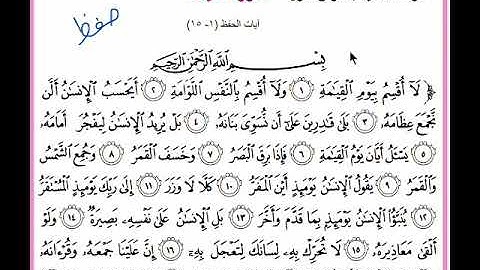 حفظ
آيات الحفظ (١- ١٥)
بِسْمِ اللَّهِ الرَّحْمَٰنِ الرَّحِيمِ
﴿ لَآ أُقْسِمُ بِيَوْمِ ٱلْقِيَٰمَةِ ١ وَلَآ أُقْسِمُ بِٱلنَّفْسِ ٱللَّوَّامَةِ ٢ أَيَحْسَبُ ٱلْإِنسَٰنُ أَلَّن
نَّجْمَعَ عِظَامَهُۥ ٣ بَلَىٰ قَٰدِرِينَ عَلَىٰٓ أَن نُّسَوِّىَ بَنَانَهُۥ ٤ بَلْ يُرِيدُ ٱلْإِنسَٰنُ لِيَفْجُرَ أَمَامَهُۥ
٥ يَسْـَٔلُ أَيَّانَ يَوْمُ ٱلْقِيَٰمَةِ ٦ فَإِذَا بَرِقَ ٱلْبَصَرُ ٧ وَخَسَفَ ٱلْقَمَرُ ٨ وَجُمِعَ ٱلشَّمْسُ
وَٱلْقَمَرُ ٩ يَقُولُ ٱلْإِنسَٰنُ يَوْمَئِذٍ أَيْنَ ٱلْمَفَرُّ ١٠ كَلَّا لَا وَزَرَ ١١ إِلَىٰ رَبِّكَ يَوْمَئِذٍ ٱلْمُسْتَقَرُّ
١٢ يُنَبَّؤُا۟ ٱلْإِنسَٰنُ يَوْمَئِذٍۭ بِمَا قَدَّمَ وَأَخَّرَ ١٣ بَلِ ٱلْإِنسَٰنُ عَلَىٰ نَفْسِهِۦ بَصِيرَةٌ ١٤ وَلَوْ
أَلْقَىٰ مَعَاذِيرَهُۥ ١٥ لَا تُحَرِّكْ بِهِۦ لِسَانَكَ لِتَعْجَلَ بِهِۦٓ ١٦ إِنَّ عَلَيْنَا جَمْعَهُۥ وَقُرْءَانَهُۥ